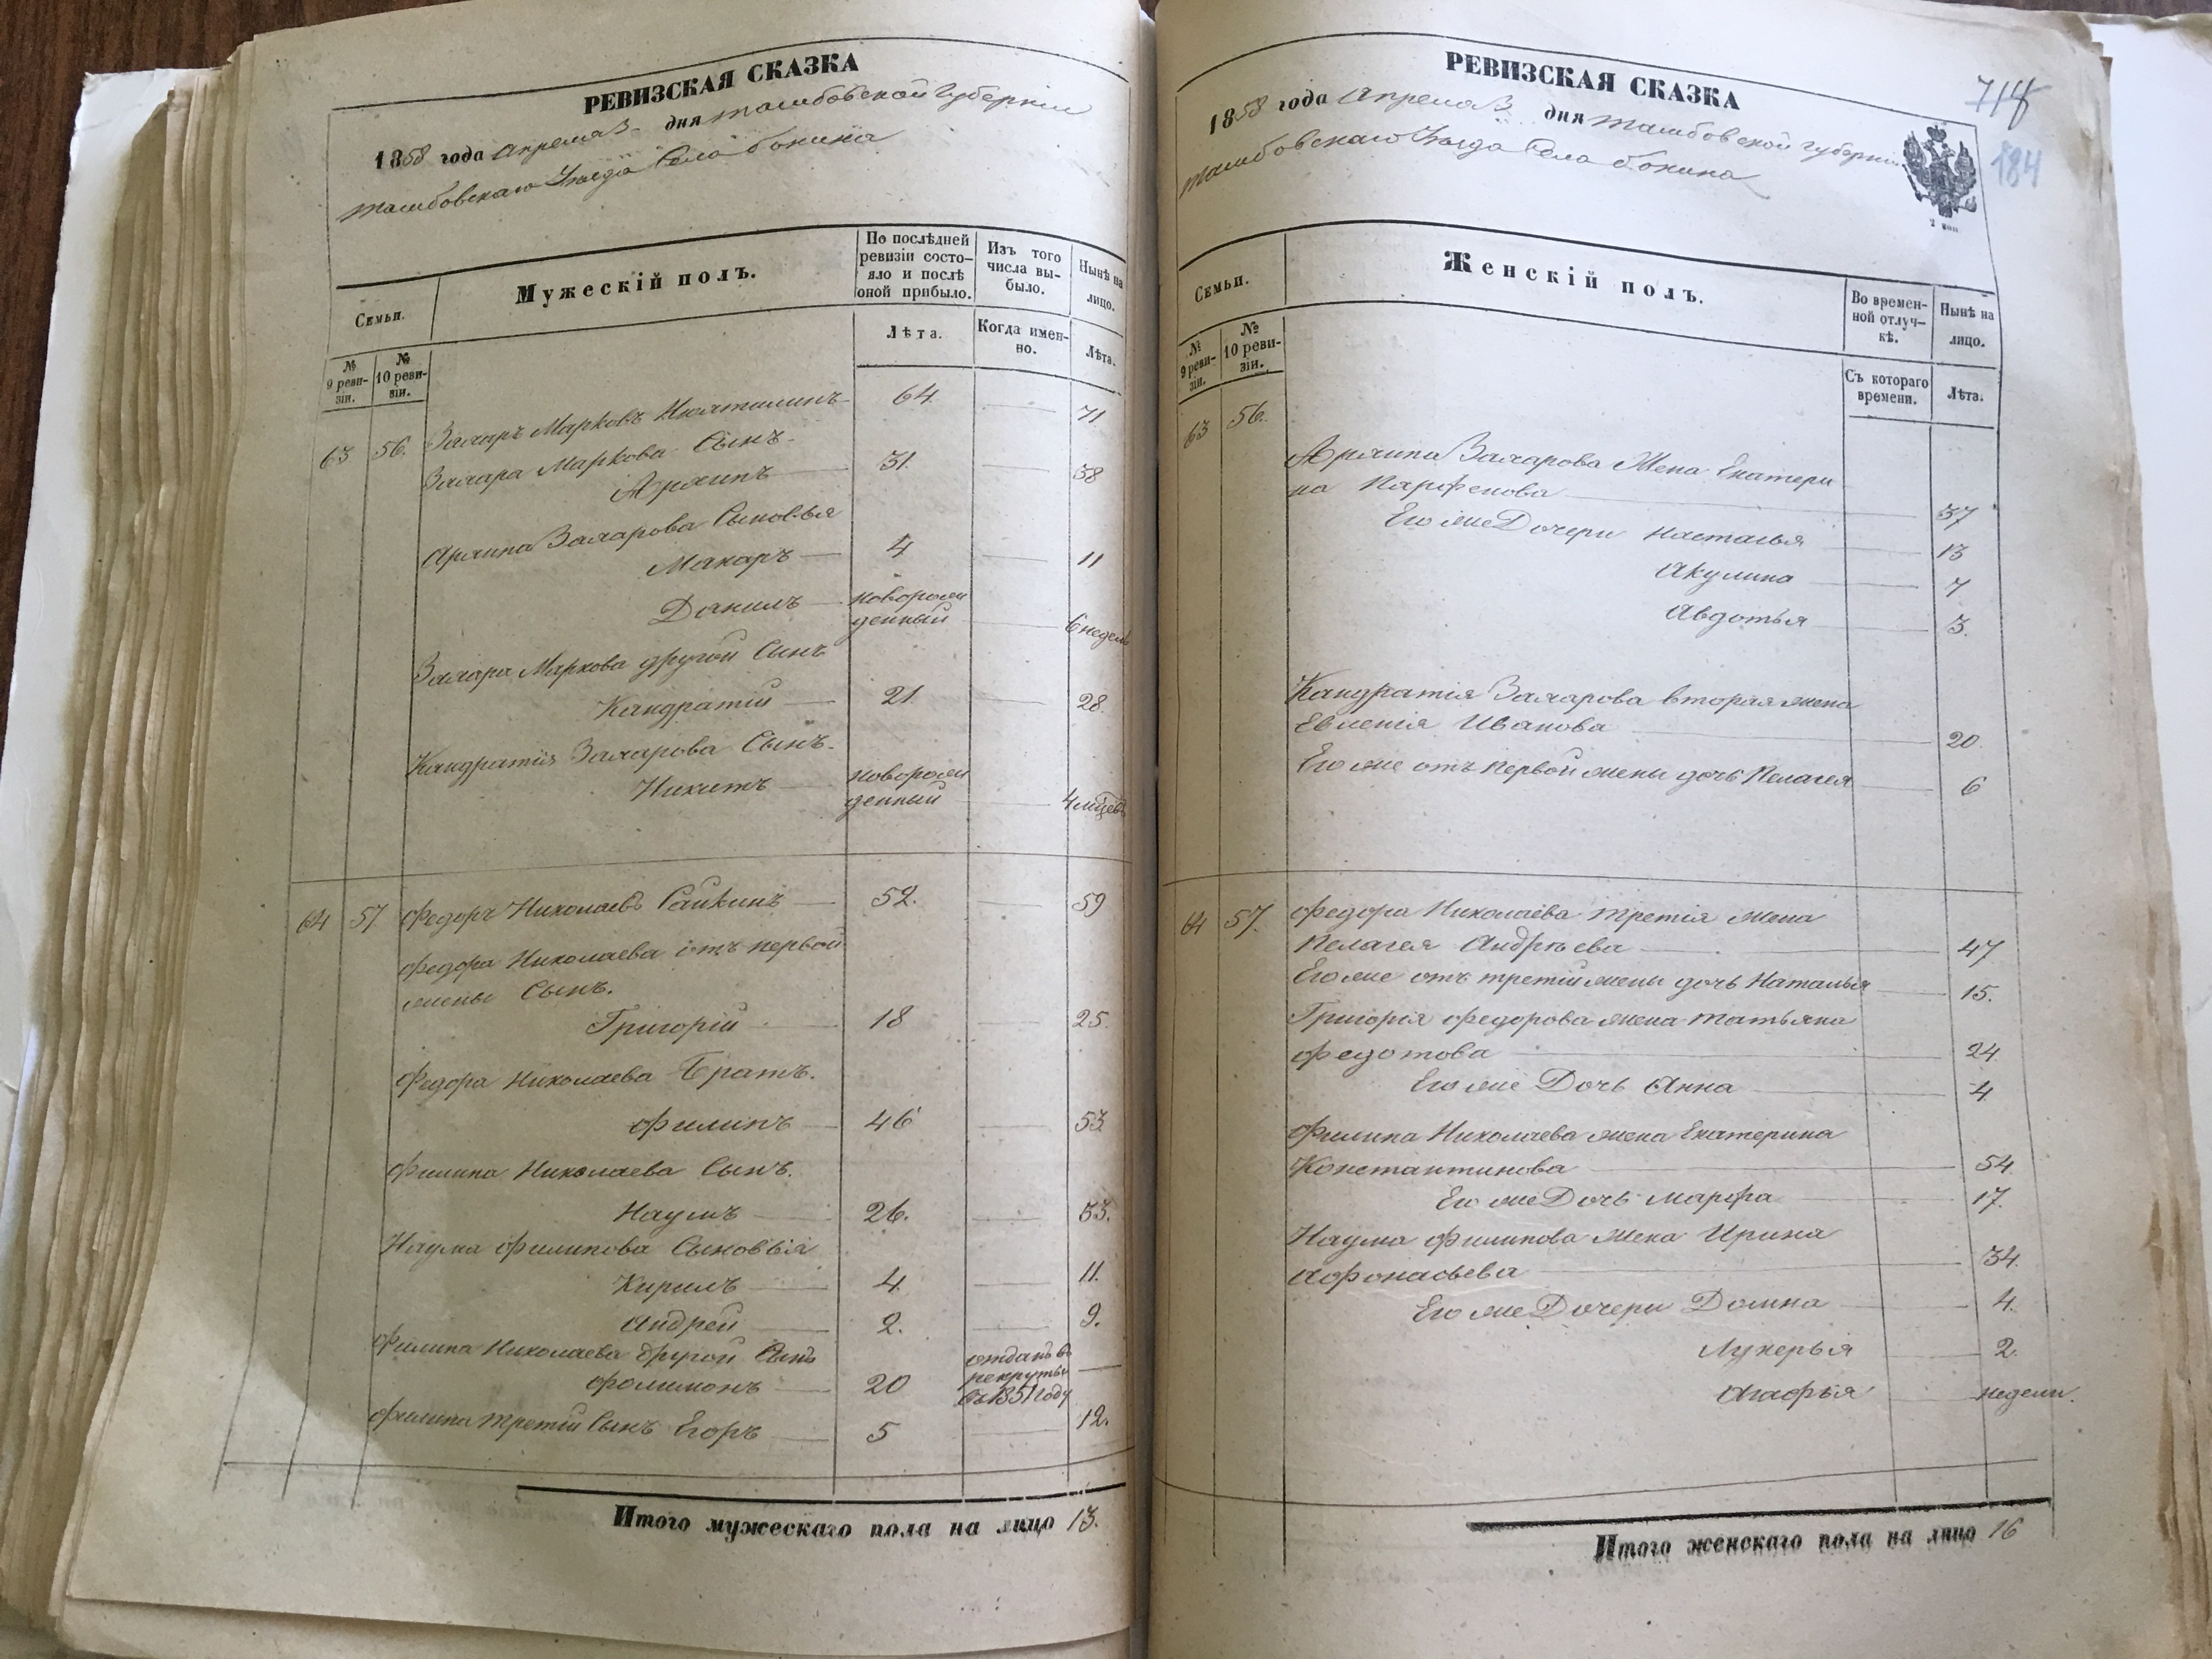 РЕВИЗСКАЯ СКАЗКА
1858 года Апреля 3 дня Тамбовской Губернии
Тамбовскаго Уѣзда Села Бокина
Семьи.
Мужескій полъ.
По послѣдней ревизіи состо-
яло и послѣ
оной прибыло.
Изъ того
числа вы-
было.
Нынѣ на
лицо.
№
9 реви-
зіи.
№
10 реви-
зіи.
Лѣта.
Когда имен-
но.
Лѣта.
63 56. Захаръ Марковъ 64 71
Захара Маркова Сынъ
Архипъ 31. 38
Архипа Захарова Сыновья
Макаръ 4 11
Данилъ новорож
денный 6 недель
Захара Маркова другой Сынъ
Кандратій 21. 28.
Кандратія Захарова Сынъ.
Никитъ новорож
денный 4 мѣцев
64 57 Федоръ Николаевъ Сайкинъ 52. 59
Федора Николаева отъ первой
жены Сынъ.
Григорій 18 25.
Федора Николаева Братъ.
Филипъ 46 53
Филипа Николаева Сынъ.
Наумъ 26. 33.
Наума Филипова Сыновья
Кирилъ 4. 11.
Андрей 2. 9.
Филипа Николаева другой Сынъ
Филимонъ 20 отданъ въ
рекруты
въ 1851 году
Филипа третій Сынъ Егоръ 5 12.
Итого мужескаго пола на лицо 13.
РЕВИЗСКАЯ СКАЗКА
718
184
1858 года Апреля 3 дня Тамбовской Губерніи
Тамбовскаго Уѣзда Села Бокина
2 коп
Семьи.
Женскій полъ.
Во времен-
ной отлуч-
кѣ.
Нынѣ на
лицо.
№
9 реви-
зіи.
№
10 реви-
зіи.
Съ котораго
времени.
Лѣта.
63 56.
Архипа Захарова Жена Екатери
на Парфенова 37
Его же Дочери Настасья 13
Акулина 7
Авдотья 3.
Кандратія Захарова вторая жена
Евгенія Иванова 20.
Его же отъ первой жены дочь Пелагея 6
64 57. Федора Николаева третія жена
Пелагея Андрѣева 47
Его же отъ третій жены дочь Наталья 15.
Григорія Федорова жена Татьяна
Федотова 24
Его же Дочь Анна 4
Филипа Николаева жена Екатерина
Константинова 54
Его же Дочь Марфа 17.
Наума Филипова жена Ирина
Афонасьева 34.
Его же Дочери Домна 4.
Лукерья 2.
Агафья недели.
Итого женскаго пола на лицо 16